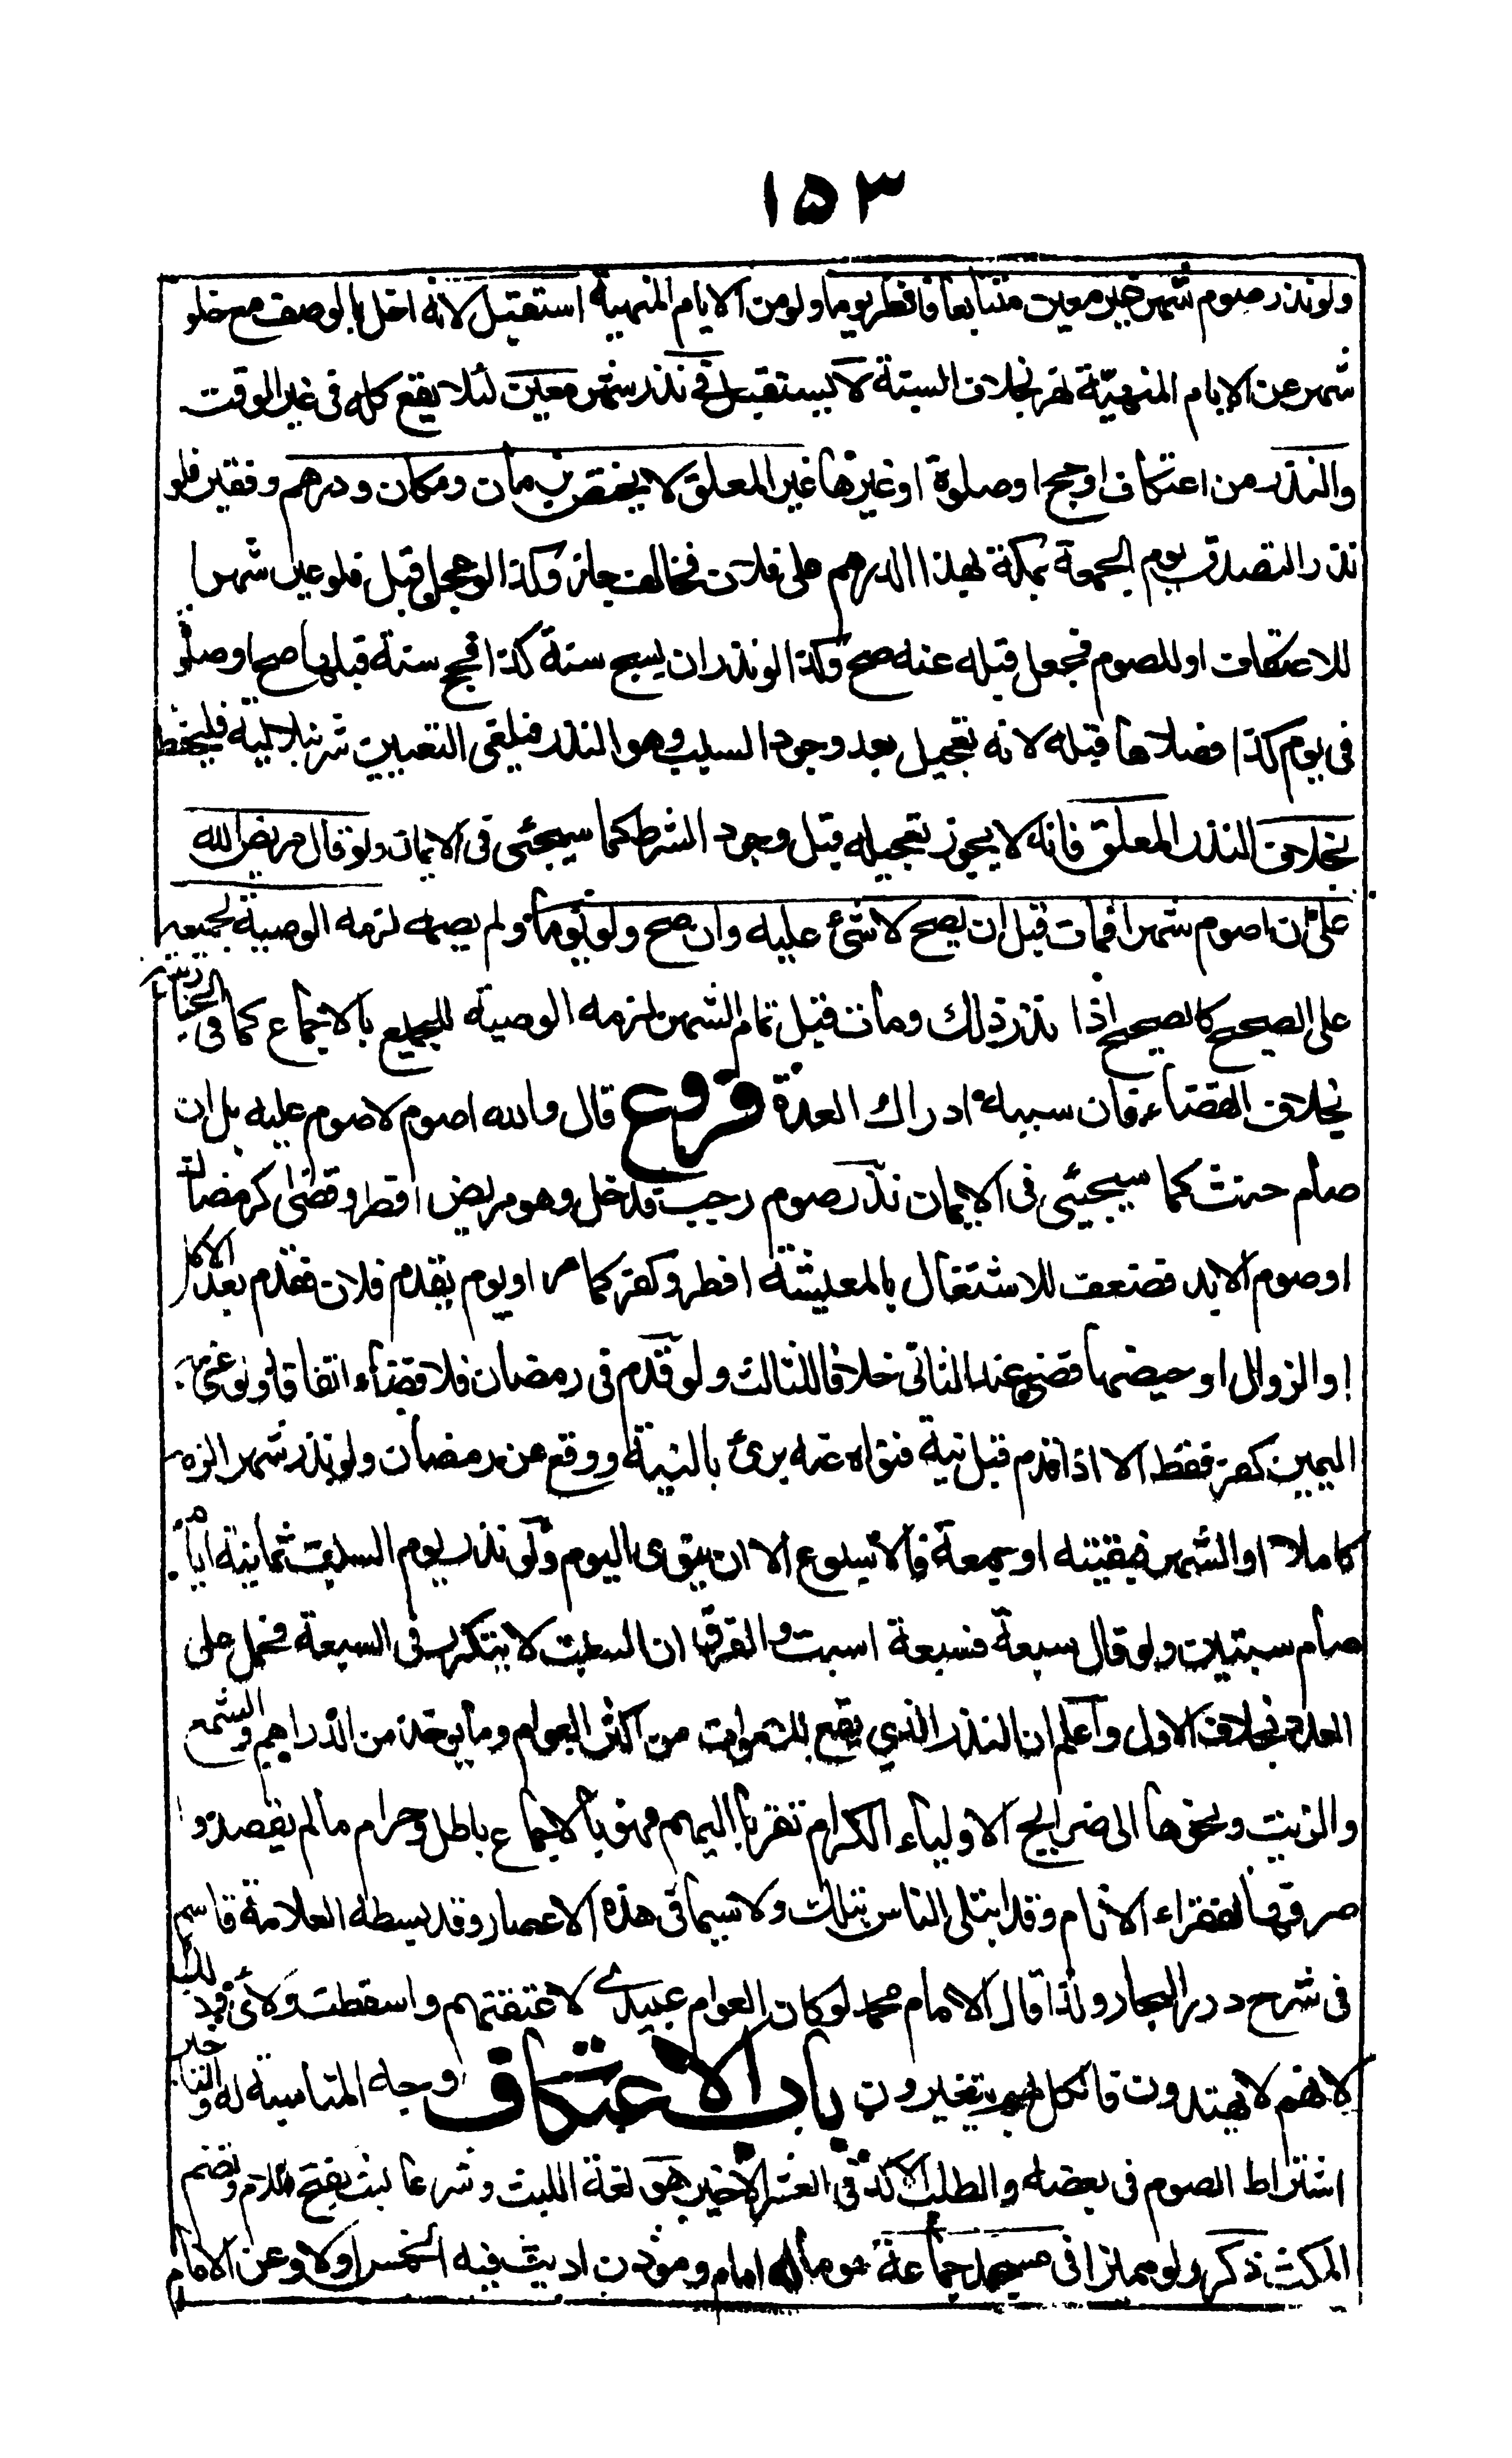 ١٥٣
ولو نذر صوم شهر غير معين متتابعا فافطر يوما ولو من الايام المنهية استقبل لانه اخل بالوصف مع خلو
شهر عن الايام المنهية نهر بخلاف السنة لا يستقبل في نذر شهر معين لئلا يقع كله في غير الوقت
والنذر من اعتكاف او حج او صلوة او غيرها غير المعلق لا يختص بزمان ومكان ودرهم وفقير فلو
نذر التصدق يوم الجمعة بمكة بهذا الدرهم على فلان فخالف جاز وكذا لو عجل قبل فلو عين شهرا
للاعتكاف او للصوم فعجل قبله عنه صح وكذا لو نذر ان يحج سنة كذا فحج سنة قبلها صح او صلوة
في يوم كذا فصلاها قبله لانه تعجيل بعد وجود السبب وهو النذر فيلغى التعيين شرنبلالية فليحفظ
بخلاف النذر المعلق فانه لا يجوز تعجيله قبل وجود الشرط كما سيجئى فى الايمان ولو قال مريض لله
على ان اصوم شهرا فمات قبل ان يصح لا شئ عليه وان صح ولو يوما ولم يصمه لزمه الوصية بجميعه
على الصحيح كالصحيح اذا نذر ذلك ومات قبل تمام الشهر لزمه الوصية للجميع بالاجماع كما في الخبازية
بخلاف القضاء فان سببه ادراك العدة فروع قال والله اصوم لا صوم عليه بل ان
صام حنث كما سيجئى فى الايمان نذر صوم رجب فدخل وهو مريض افطر وقضى كرمضان
او صوم الابد فضعف للاشتغال بالمعيشة افطر وكفر كما مر او يوم يقدم فلان فقدم بعد الاكل
او الزوال او حيضها قضى عند الثانى خلافا للثالث ولو قدم فى رمضان فلا قضاء اتفاقا ولو عنى به
اليمين كفر فقط الا اذا قدم قبل نية فنواه عنه برئ بالنية ووقع عن رمضان ولو نذر شهر الزمه
كاملا او الشهر فبقيته او جمعة فالاسبوع الا ان ينوى اليوم ولو نذر يوم السبت ثمانية ايام
صام سبتين ولو قال سبعة فسبعة اسبت والفرق ان السبت لا يتكرر فى السبعة فحمل على
العدد بخلاف الاول واعلم ان النذر الذي يقع للاموات من اكثر العوام وما يوخذ من الدراهم والشمع
والزيت ونحوها الى ضرايح الاولياء الكرام تقربا اليهم فهو بالاجماع باطل وحرام ما لم يقصدوا
صرفها لفقراء الانام وقد ابتلى الناس بذلك ولا سيما فى هذه الاعصار وقد بسطه العلامة قاسم
فى شرح درر البحار ولذا قال الامام محمد لو كان العوام عبيدي لاعتقتهم واسقطت ولائى وذلك
لانهم لا يهتدون فالكل بهم يتغيرون باب الاعتكاف وجه المناسبة له والتاخير
اشتراط الصوم فى بعضه والطلب الاكد فى العشر الاخير هو لغة اللبث وشرعا لبث بفتح اللام وتضم
المكث ذكر ولو مميزا فى مسجد جماعة هو ما له امام وموذن اديت فيه الخمس اولا وعن الامام